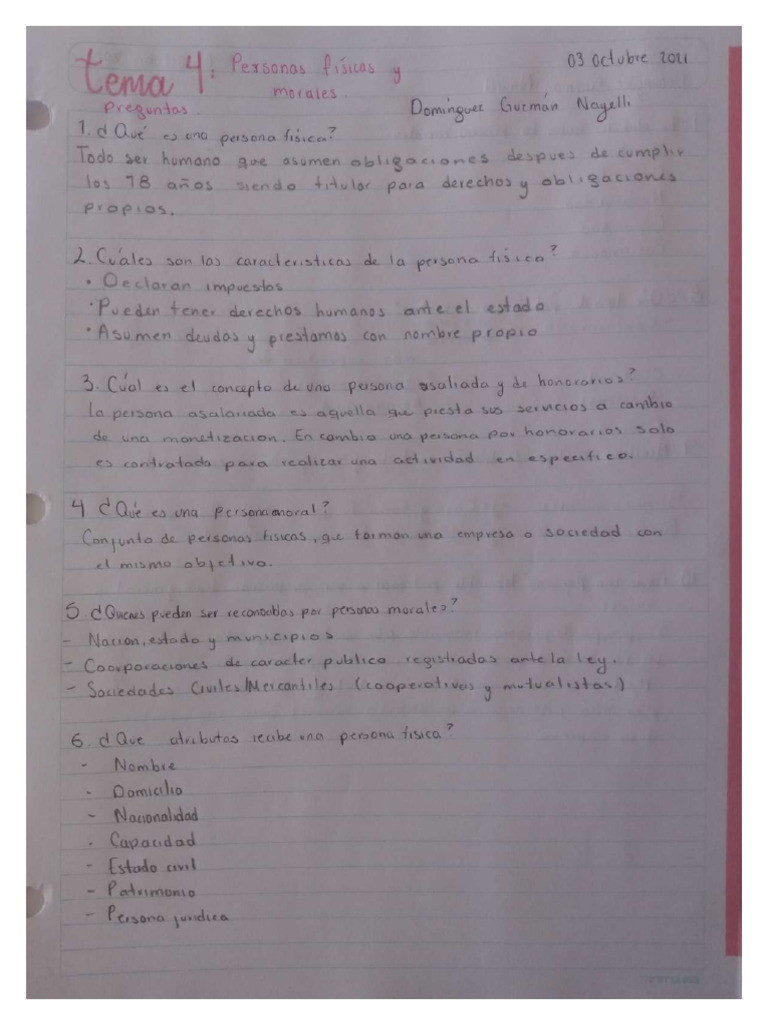 03 Octubre 2021
tema 4: Personas físicas y
morales.
Preguntas.
Domínguez Guzmán Nayelli
1. ¿Qué es una persona física?
Todo ser humano que asumen obligaciones despues de cumplir
los 18 años siendo titular para derechos y obligaciones
propios.
2. Cuáles son las caracteristicas de la persona física?
• Declaran impuestos
• Pueden tener derechos humanos ante el estado
• Asumen deudas y prestamos con nombre propio
3. Cúal es el concepto de una persona asaliada y de honorarios?
la persona asalariada es aquella que presta sus servicios a cambio
de una monetizacion. En cambio una persona por honorarios solo
es contratada para realizar una actividad en especifico.
4 ¿Qué es una persona moral?
Conjunto de personas fisicas, que forman una empresa o sociedad con
el mismo objetivo.
5 ¿Quienes pueden ser reconocidas por personas morales?
- Nacion, estado y municipios
- Coorporaciones de caracter publico registradas ante la ley.
- Sociedades Civiles/Mercantiles (cooperativas y mutualistas)
6. ¿Que atributos recibe una persona fisica?
- Nombre
- Domicilio
- Nacionalidad
. Capacidad
- Estado civil
- Patrimonio
- Persona juridica